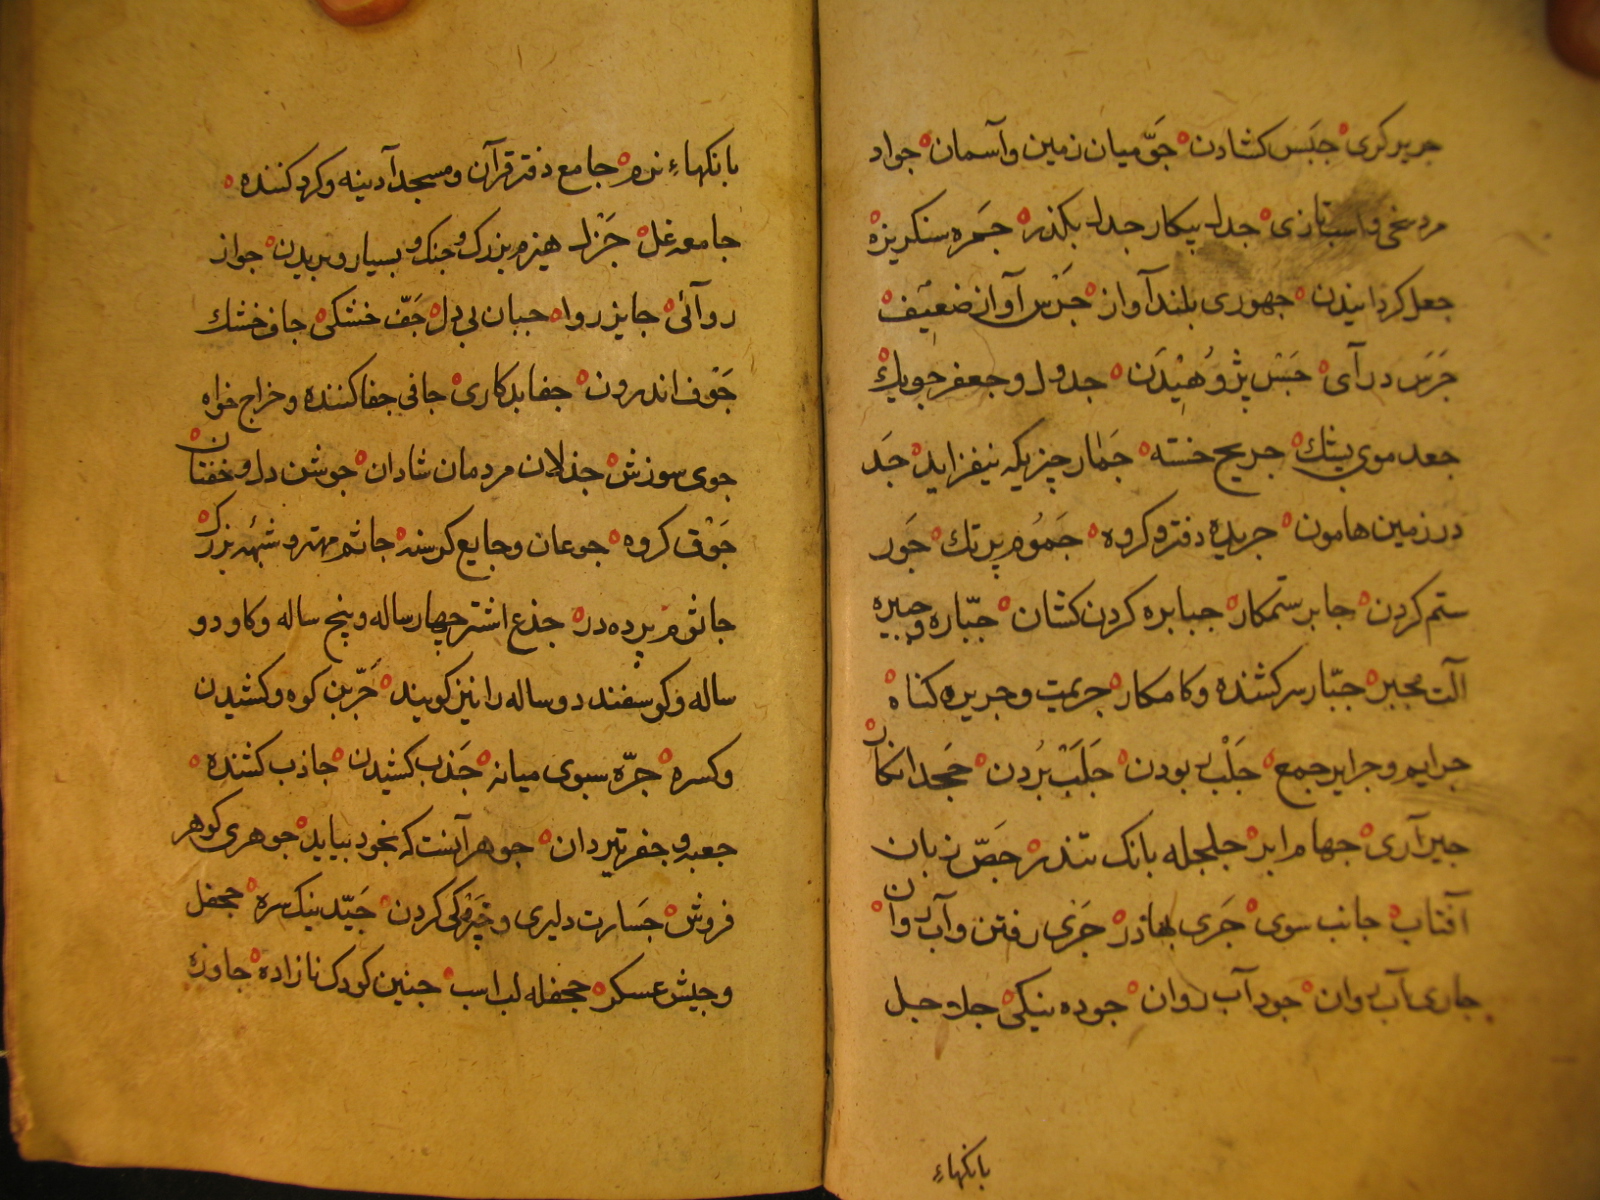 جریر کری جَبَس کشادن جَوّ میان زمین و آسمان جواد
مرد سخی و اسب تازی جدال پیکار جدا بکذر جَمره سنکریزه
جعل کردانیدن جهوری بلند آواز جَرْس آواز ضعیف
جَرَس درای جَسْ پژوهیدن جدول و جعفر جویك
جعد موی پشك جریح خسته جَمار چیزیکه نیفزاید جَدَ
در زمین هامون جریده دفتر و کروه جَمُوم پرتك جَور
ستم کردن جابر ستمکار جبابره کردن کشان جبّاره و جبیره
آلت مجبر جبّار سرکشنده و کامکار جریمت و جریره کناه
جرایم و جرایر جمع جَلْب بودن جَلَبْ بُردن جحد انکار
جیر آری جهام ابر جلجله بانک تندر جَصّ زبان
آفتاب جانب سوی جَری بهادر جَرْی رفتن و آب روان
جاری آب روان جود آب روان جوده نیکی جل و جبل
بانکهاءِ
بانکهاءِ نرم جامع دفتر قرآن و مسجد آدینه و کرد کننده
جامعه غل جَزْل هیزم بزرك و جنك و بسیار و بریدن جواز
روآئی جایز روا جبان بی دل جَفّ خشکی جاف خشك
جَوْف اندرون جفا بدکاری جافی جفا کننده و خراج خواه
جوی سوزش جذلان مردمان شادان جوشن دل و خفتان
جَوْق کروه جوعان و جایع کرسنه جاثم مهتر و شبهه بزرك
جاثوم پرده در جذع اشتر چهار ساله و پنج ساله و کاو دو
ساله و کوسفند دو ساله را نیز کویند جَرّ بن کوه و کشیدن
و کسره جرّه سبوی میانه جَذب کشیدن جاذب کشنده
جعبه و جفر تیردان جوهر آنست که بخود بیاید جوهری کوهر
فروش جَسارت دلیری و خیرکی کردن جَیّد نیك سره جحفل
و جیش عسکر جحفله لب اسب جنین کودك نازاده جاوزه